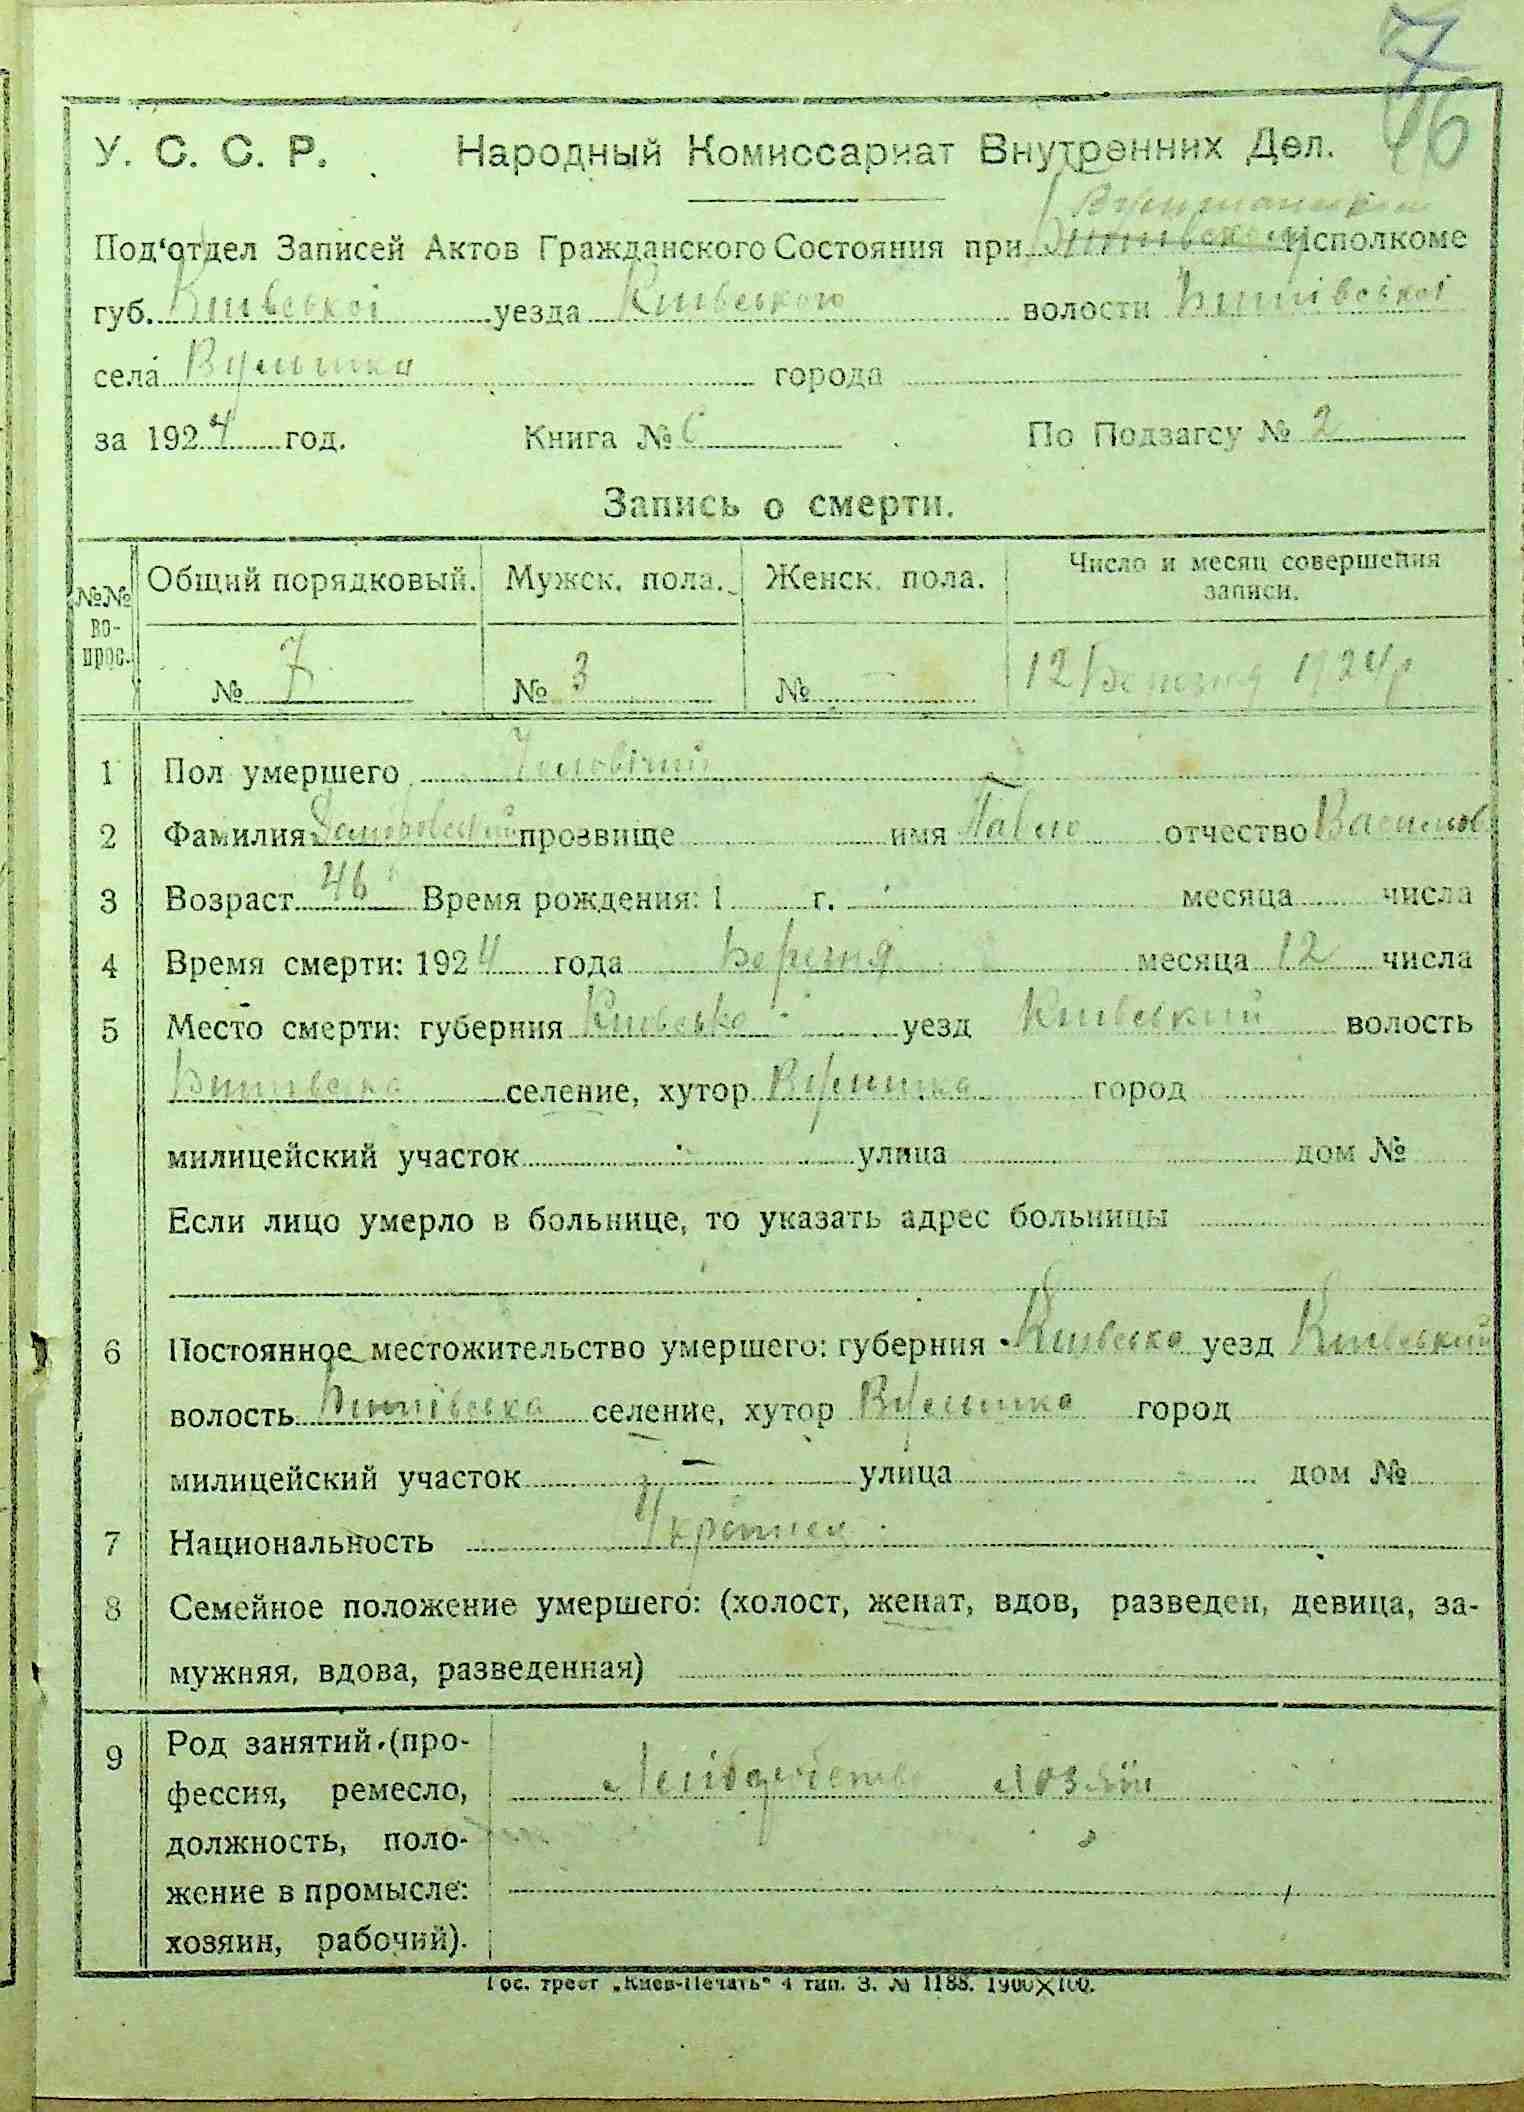 7
У. С. С. Р. Народный Комиссариат Внутренних Дел.
Под'отдел Записей Актов Гражданского Состояния при Исполкоме
губ. Київської уезда Київського волости
села города
за 1924 год. Книга № По Подзагсу № 2
Запись о смерти.
№№ вопрос. Общий порядковый. Мужск. пола. Женск. пола. Число и месяц совершения записи.
№ 7 № 3 № 12 Березня 1924 р
1 Пол умершего Чоловічий
2 Фамилия прозвище имя Павло отчество
3 Возраст 46 Время рождения: 1 г. месяца числа
4 Время смерти: 1924 года Березня месяца 12 числа
5 Место смерти: губерния Київська уезд Київський волость
селение, хутор город
милицейский участок улица дом №
Если лицо умерло в больнице, то указать адрес больницы
6 Постоянное местожительство умершего: губерния Київська уезд Київський
волость селение, хутор город
милицейский участок - улица дом №
7 Национальность
8 Семейное положение умершего: (холост, женат, вдов, разведен, девица, за-
мужняя, вдова, разведенная)
9 Род занятий (про-
фессия, ремесло,
должность, поло-
жение в промысле:
хозяин, рабочий).
Гос. трест „Киев-Печать" 4 тип. З. № 1188. 1900×100.